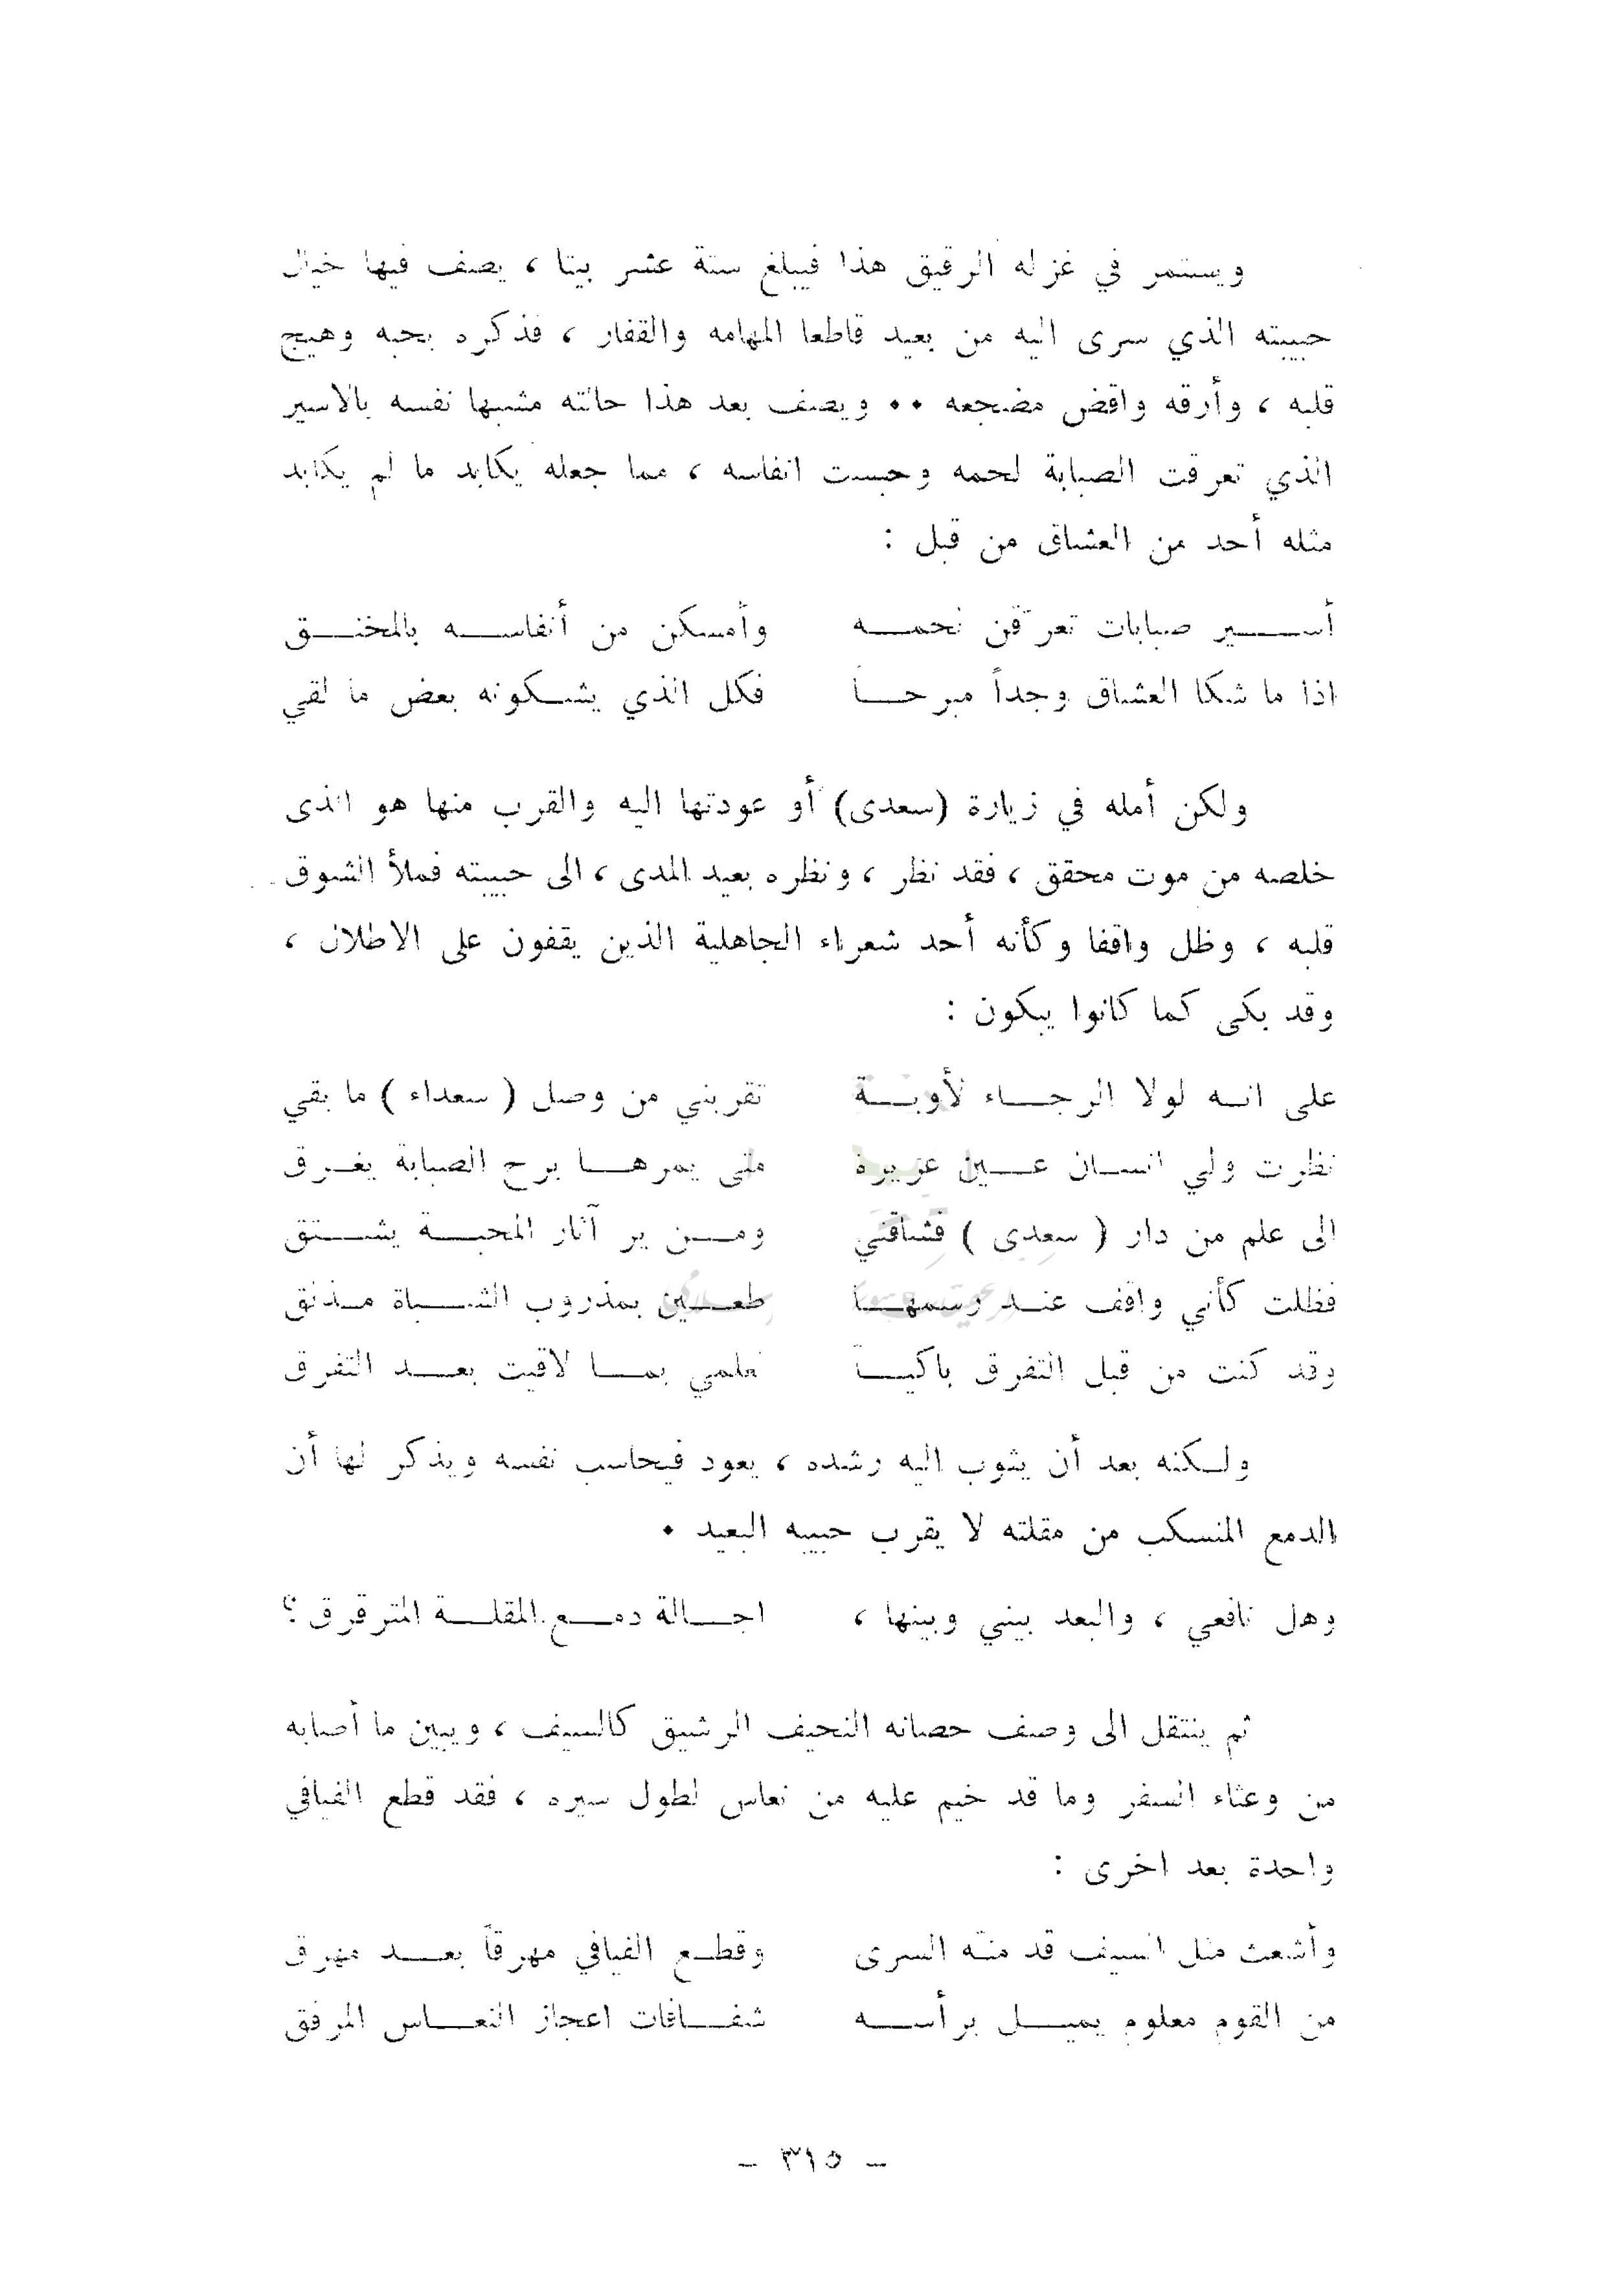 ويستمر في غزله الرقيق هذا فيبلغ ستة عشر بيتا ، يصف فيها خيال
حبيبته الذي سرى اليه من بعيد قاطعا المهامه والقفار ، فذكره بحبه وهيج
قلبه ، وأرقه واقض مضجعه ٠٠ ويصف بعد هذا حالته مشبها نفسه بالاسير
الذي تعرقت الصبابة لحمه وحبست انفاسه ، مما جعله يكابد ما لم يكابد
مثله أحد من العشاق من قبل :
أســـير صبابات تعرقن لحمـــه وأمسكن من أنفاســـه بالمخنـــق
اذا ما شكا العشاق وجداً مبرحـــا فكل الذي يشـــكونه بعض ما لقي
ولكن أمله في زيارة (سعدى) أو عودتها اليه والقرب منها هو الذى
خلصه من موت محقق ، فقد نظر ، ونظره بعيد المدى ، الى حبيبته فملأ الشوق
قلبه ، وظل واقفا وكأنه أحد شعراء الجاهلية الذين يقفون على الاطلال ،
وقد بكى كما كانوا يبكون :
على انـــه لولا الرجـــاء لأوبـــة تقربني من وصل ( سعداء ) ما بقي
نظرت ولي انســـان عـــين غزيرة متى يمرهـــا برح الصبابة يغـــرق
الى علم من دار ( سعدى ) فشاقني ومـــن ير آثار المحبـــة يشـــتق
فظلت كأني واقف عنـــد رسمهـــا طعـــين بمذروب الشـــباة مـــذلق
وقد كنت من قبل التفرق باكيـــا لعلمي بمـــا لاقيت بعـــد التفرق
ولـــكنه بعد أن يثوب اليه رشده ، يعود فيحاسب نفسه ويذكر لها أن
الدمع المنسكب من مقلته لا يقرب حبيبه البعيد ٠
وهل نافعي ، والبعد بيني وبينها ، اجـــالة دمـــع المقلـــة المترقرق ؟
ثم ينتقل الى وصف حصانه النحيف الرشيق كالسيف ، ويبين ما أصابه
من وعثاء السفر وما قد خيم عليه من نعاس لطول سيره ، فقد قطع الفيافي
واحدة بعد اخرى :
وأشعث مثل السيف قد منـــه السرى وقطـــع الفيافي مهرقاً بعـــد مهرق
من القوم معلوم يميـــل برأســـه شفـــافات اعجاز النعـــاس المرفق
- ٣١٥ -